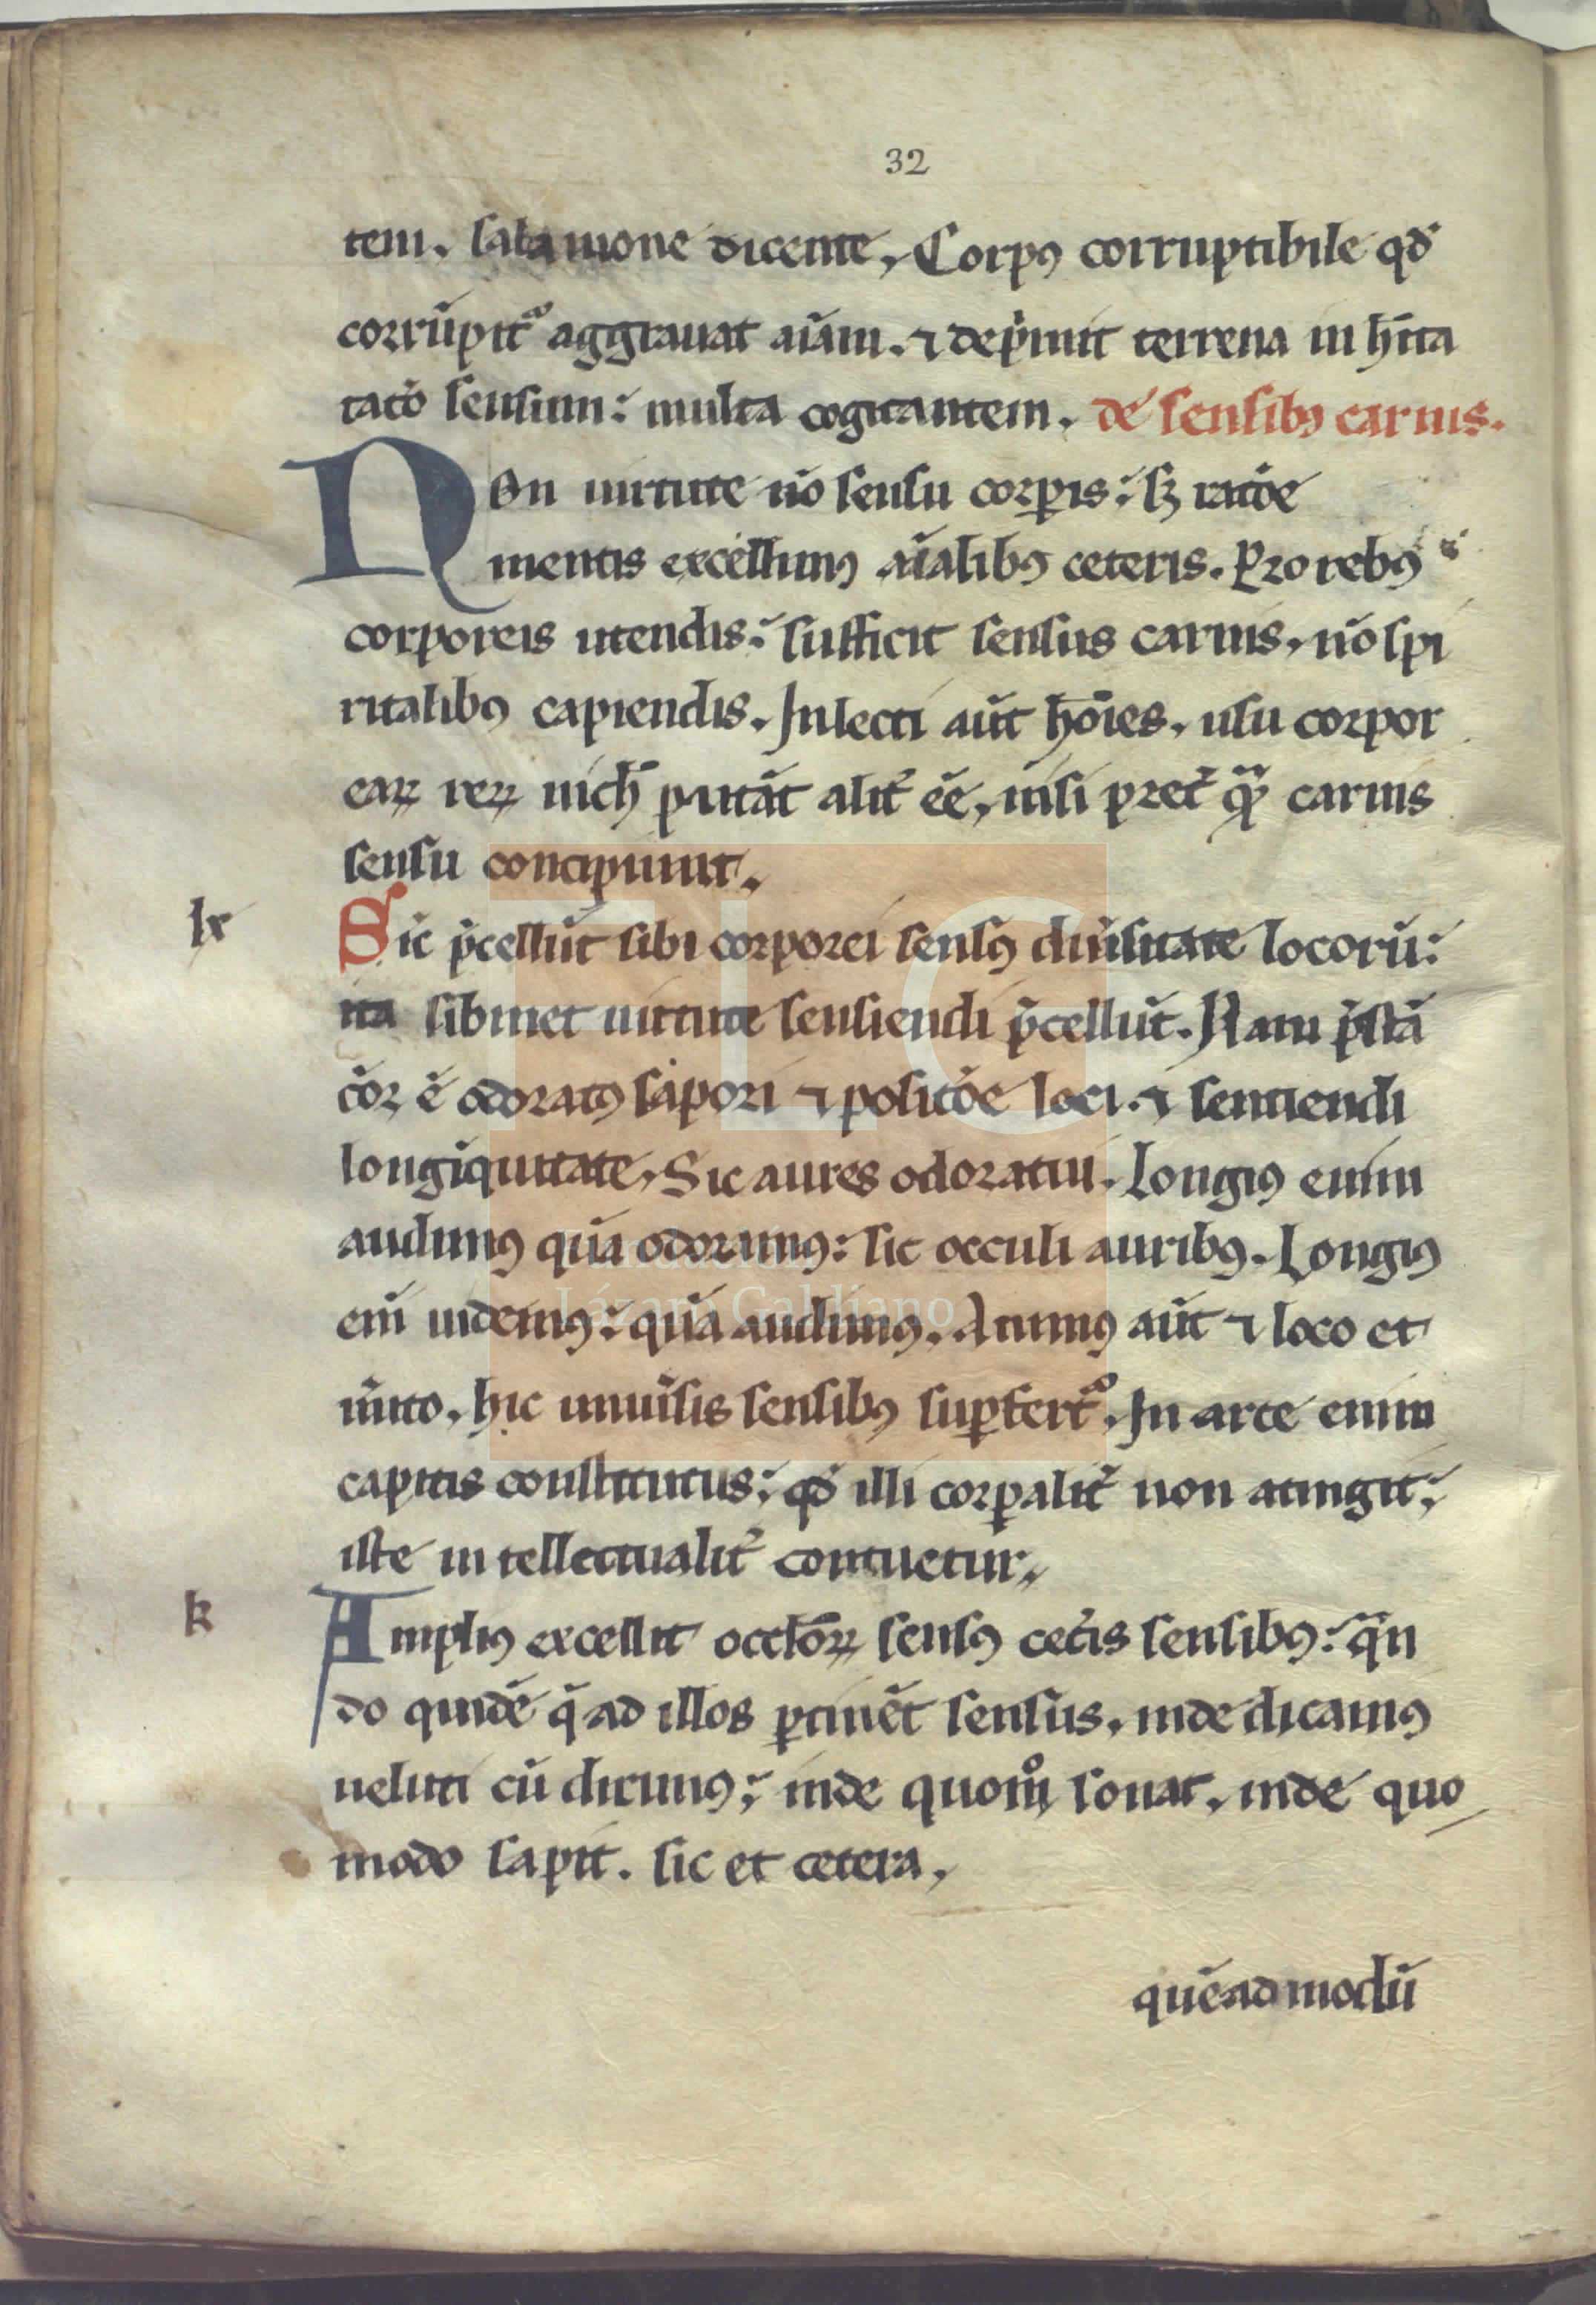 32
tem. salamone dicente, Corpꝰ corruptibile qđ
corrūpit᷑ aggrauat aīam. ⁊ dep̍mit terrena in hīta
tatō sensum: multa cogitantem. de sensibꝰ carnis.
Non uirtute nō sensu corꝑis: sꝫ ratōe
mentis excellimꝰ aīalibꝰ ceteris. Pro rebꝰ
corporeis utendis: sufficit sensus carnis, nō spi
ritalibꝰ capiendis. Inlecti aūt hōies, usu corpor
eaꝝ reꝝ nich̄ putāt alit̄ eē, nisi pret̄ qđ carnis
sensu concipiunt.
lx
Sic p̄cellūt sibi corporei sensꝰ diūsitate locorū:
ita sibimet uirtute sensiendi p̄cellūt. Nam p̄stā
cior ē odoratꝰ sapori ⁊ positōe loci. ⁊ sentiendi
longīquitate, Sic aures odoratui. Longiꝰ enim
audimꝰ quā odoramꝰ: sic occuli auribꝰ. Longiꝰ
enī uidemꝰ: quā audimꝰ. Animꝰ aūt ⁊ loco et
m̄ito, hic uniūsis sensibꝰ suꝑfert᷑. In arce enim
capitis constitutus: qđ illi corꝑalit̄ non atingit:
iste intellectualit̄ contuetur.
k
Ampliꝰ excellit occloꝝ sensꝰ cet̄is sensibꝰ: qn̄
do quidē q̄ ad illos ꝑtinēt sensus, inde dicamꝰ
ueluti cū dicimꝰ: inde quom̊ sonat, inde quo
modo sapit. sic et cetera,
quēadmodū
FLG
Fundación
Lázaro Galdiano